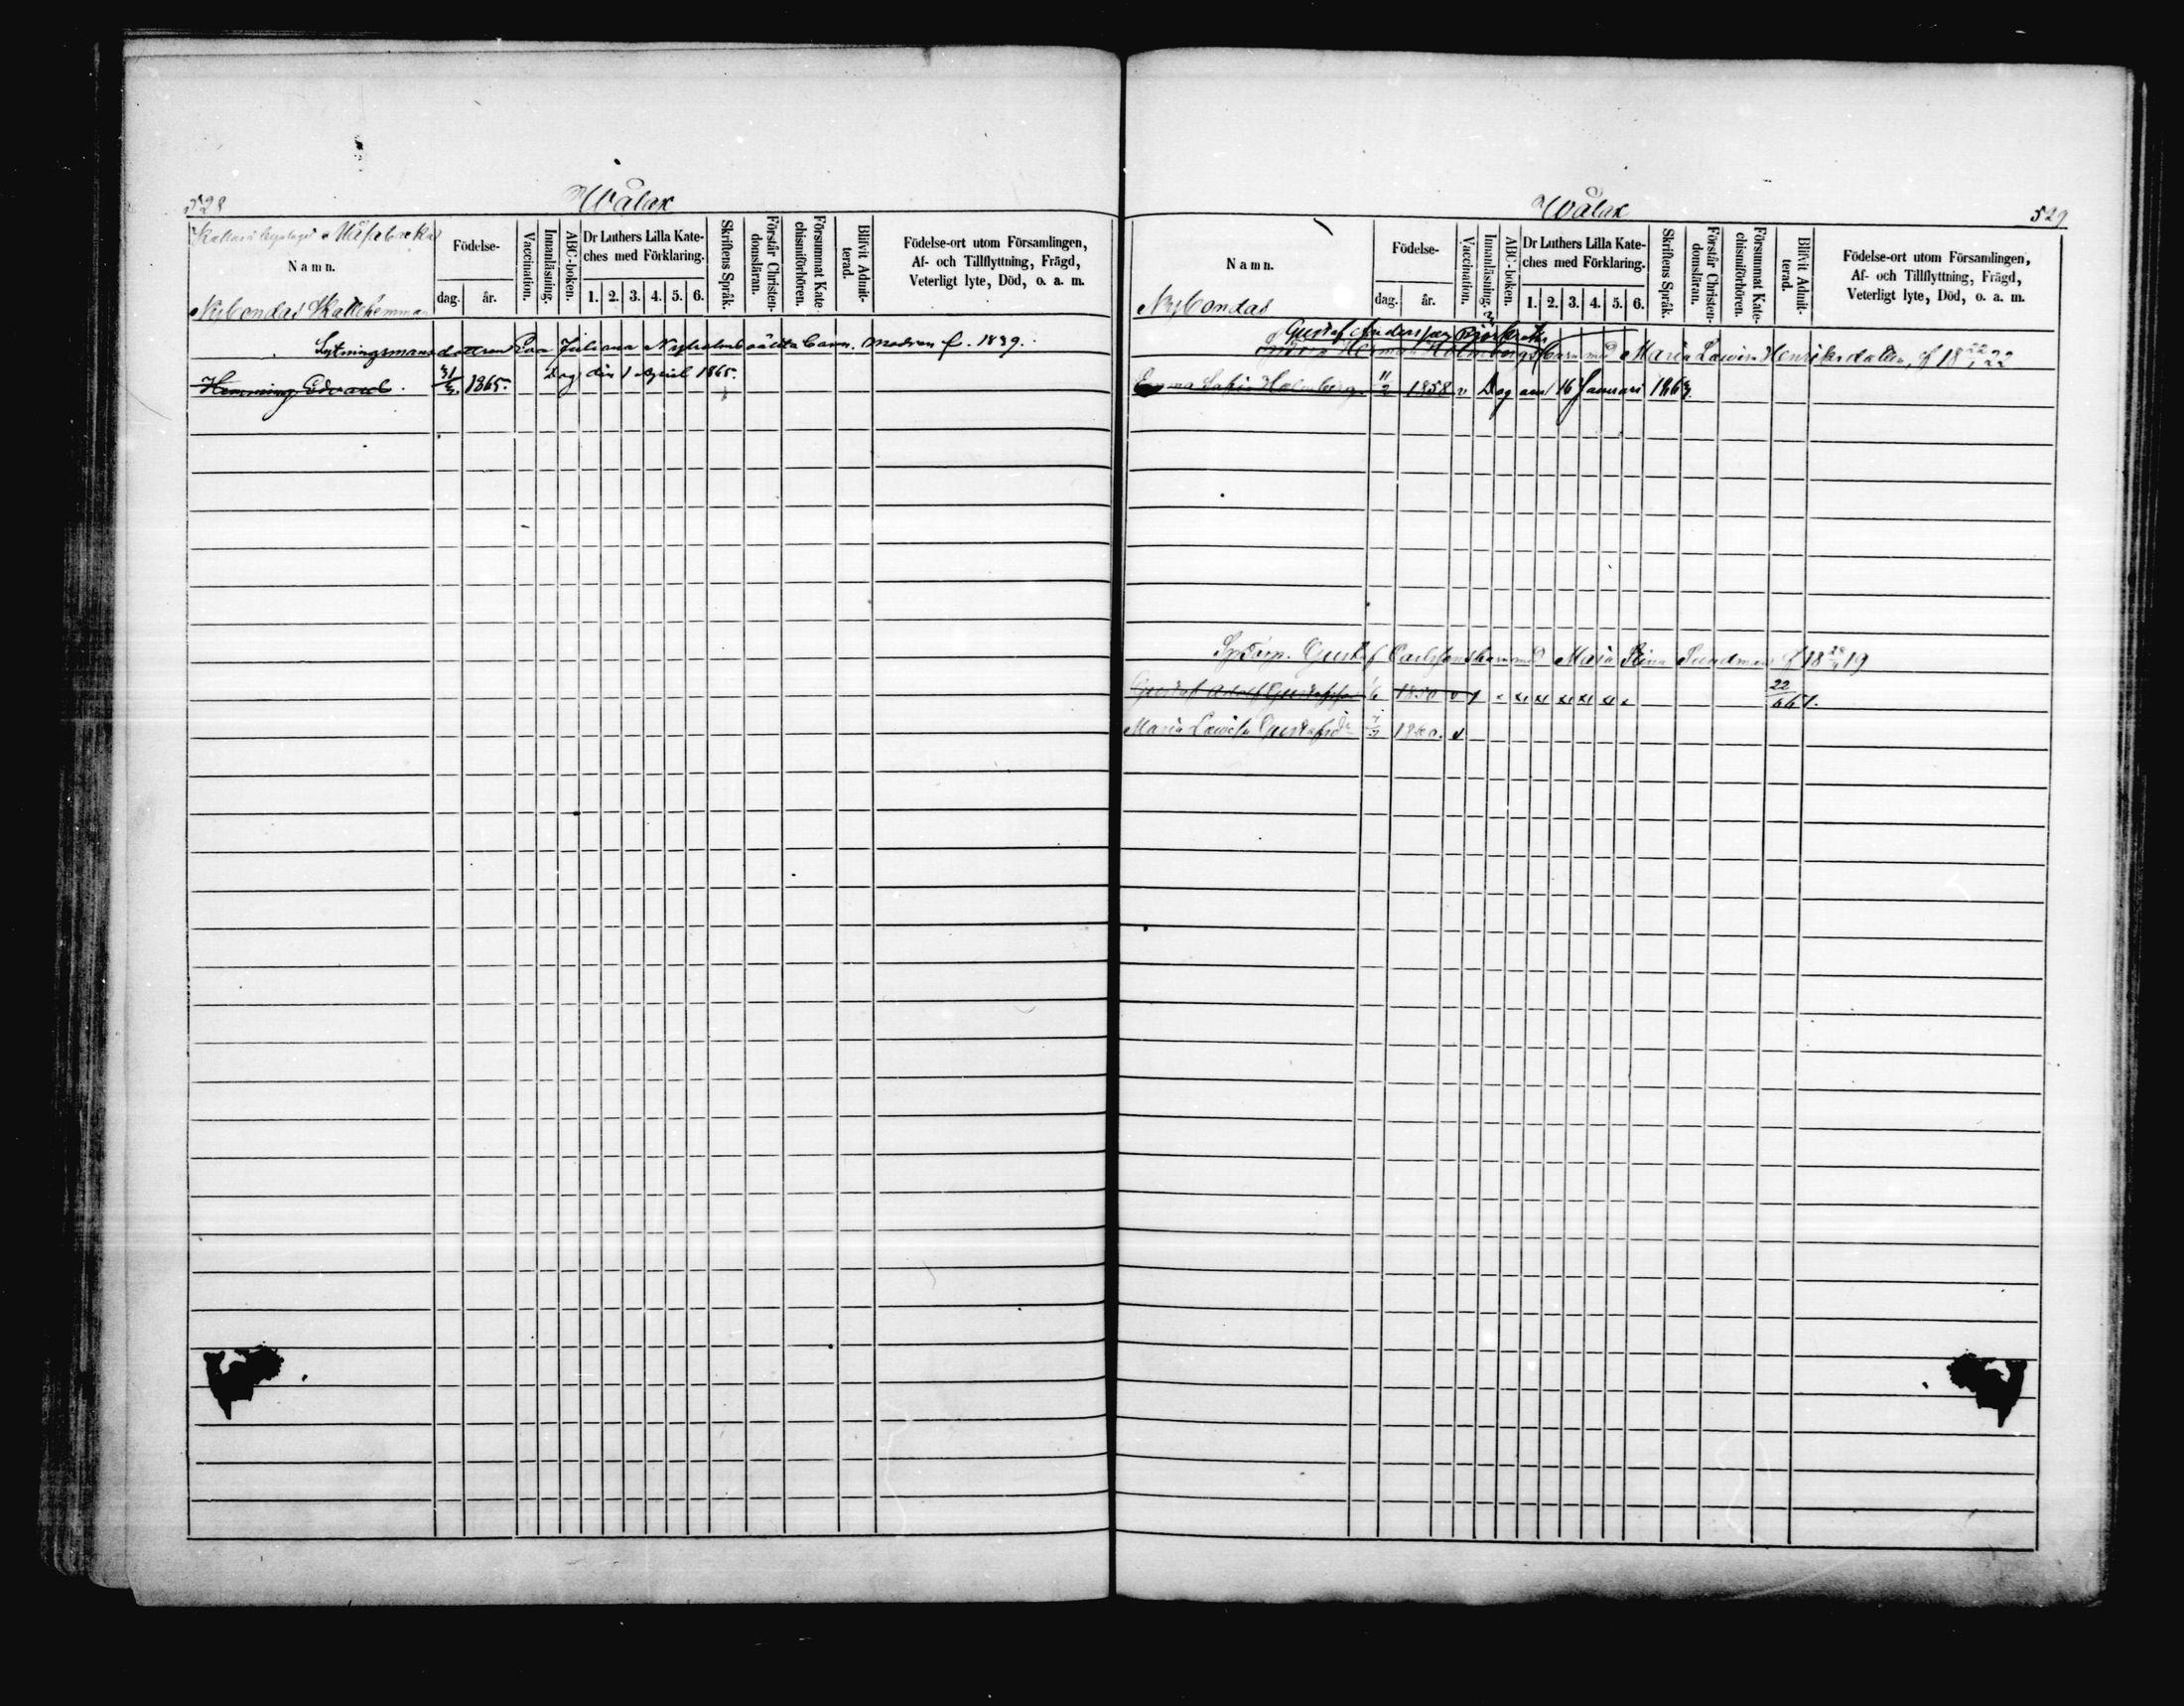 528
Wålax
Namn.
Födelse-
dag.
år.
Vaccination.
Innanläsning.
ABC-boken.
Dr Luthers Lilla Kate-
ches med Förklaring.
1. 2. 3. 4. 5. 6.
Skriftens Språk.
Förstår Christen-
domsläran.
Försummat Kate-
chismiförhören.
Blifvit Admit-
terad.
Födelse-ort utom Församlingen,
Af- och Tillflyttning, Frägd,
Veterligt lyte, Död, o. a. m.
Nybondas Skattehemman
Sytningsmansdottren Eva Juliana Nyholms oäkta barn. Modren f. 1839.
Henning Edvard. 31/3 1865. Dog den 1 April 1865.
Wålax
529
Namn.
Födelse-
dag.
år.
Vaccination.
Innanläsning.
ABC-boken.
Dr Luthers Lilla Kate-
ches med Förklaring.
1. 2. 3. 4. 5. 6.
Skriftens Språk.
Förstår Christen-
domsläran.
Försummat Kate-
chismiförhören.
Blifvit Admit-
terad.
Födelse-ort utom Församlingen,
Af- och Tillflyttning, Frägd,
Veterligt lyte, Död, o. a. m.
Nybondas
Gustaf Andersson
Herman Holmbergs barn med Maria Lovisa Henriksdotter, f 18 22
Emma Sofia Holmberg 11/2 1858 v Dog 16 Januari
Gustaf Carlssons barn med Maja Stina Sundman f 18 19
Gustaf Adolf Gustafsson 1850 v x 22
Maria Lovisa Gustafsdr 1860. v